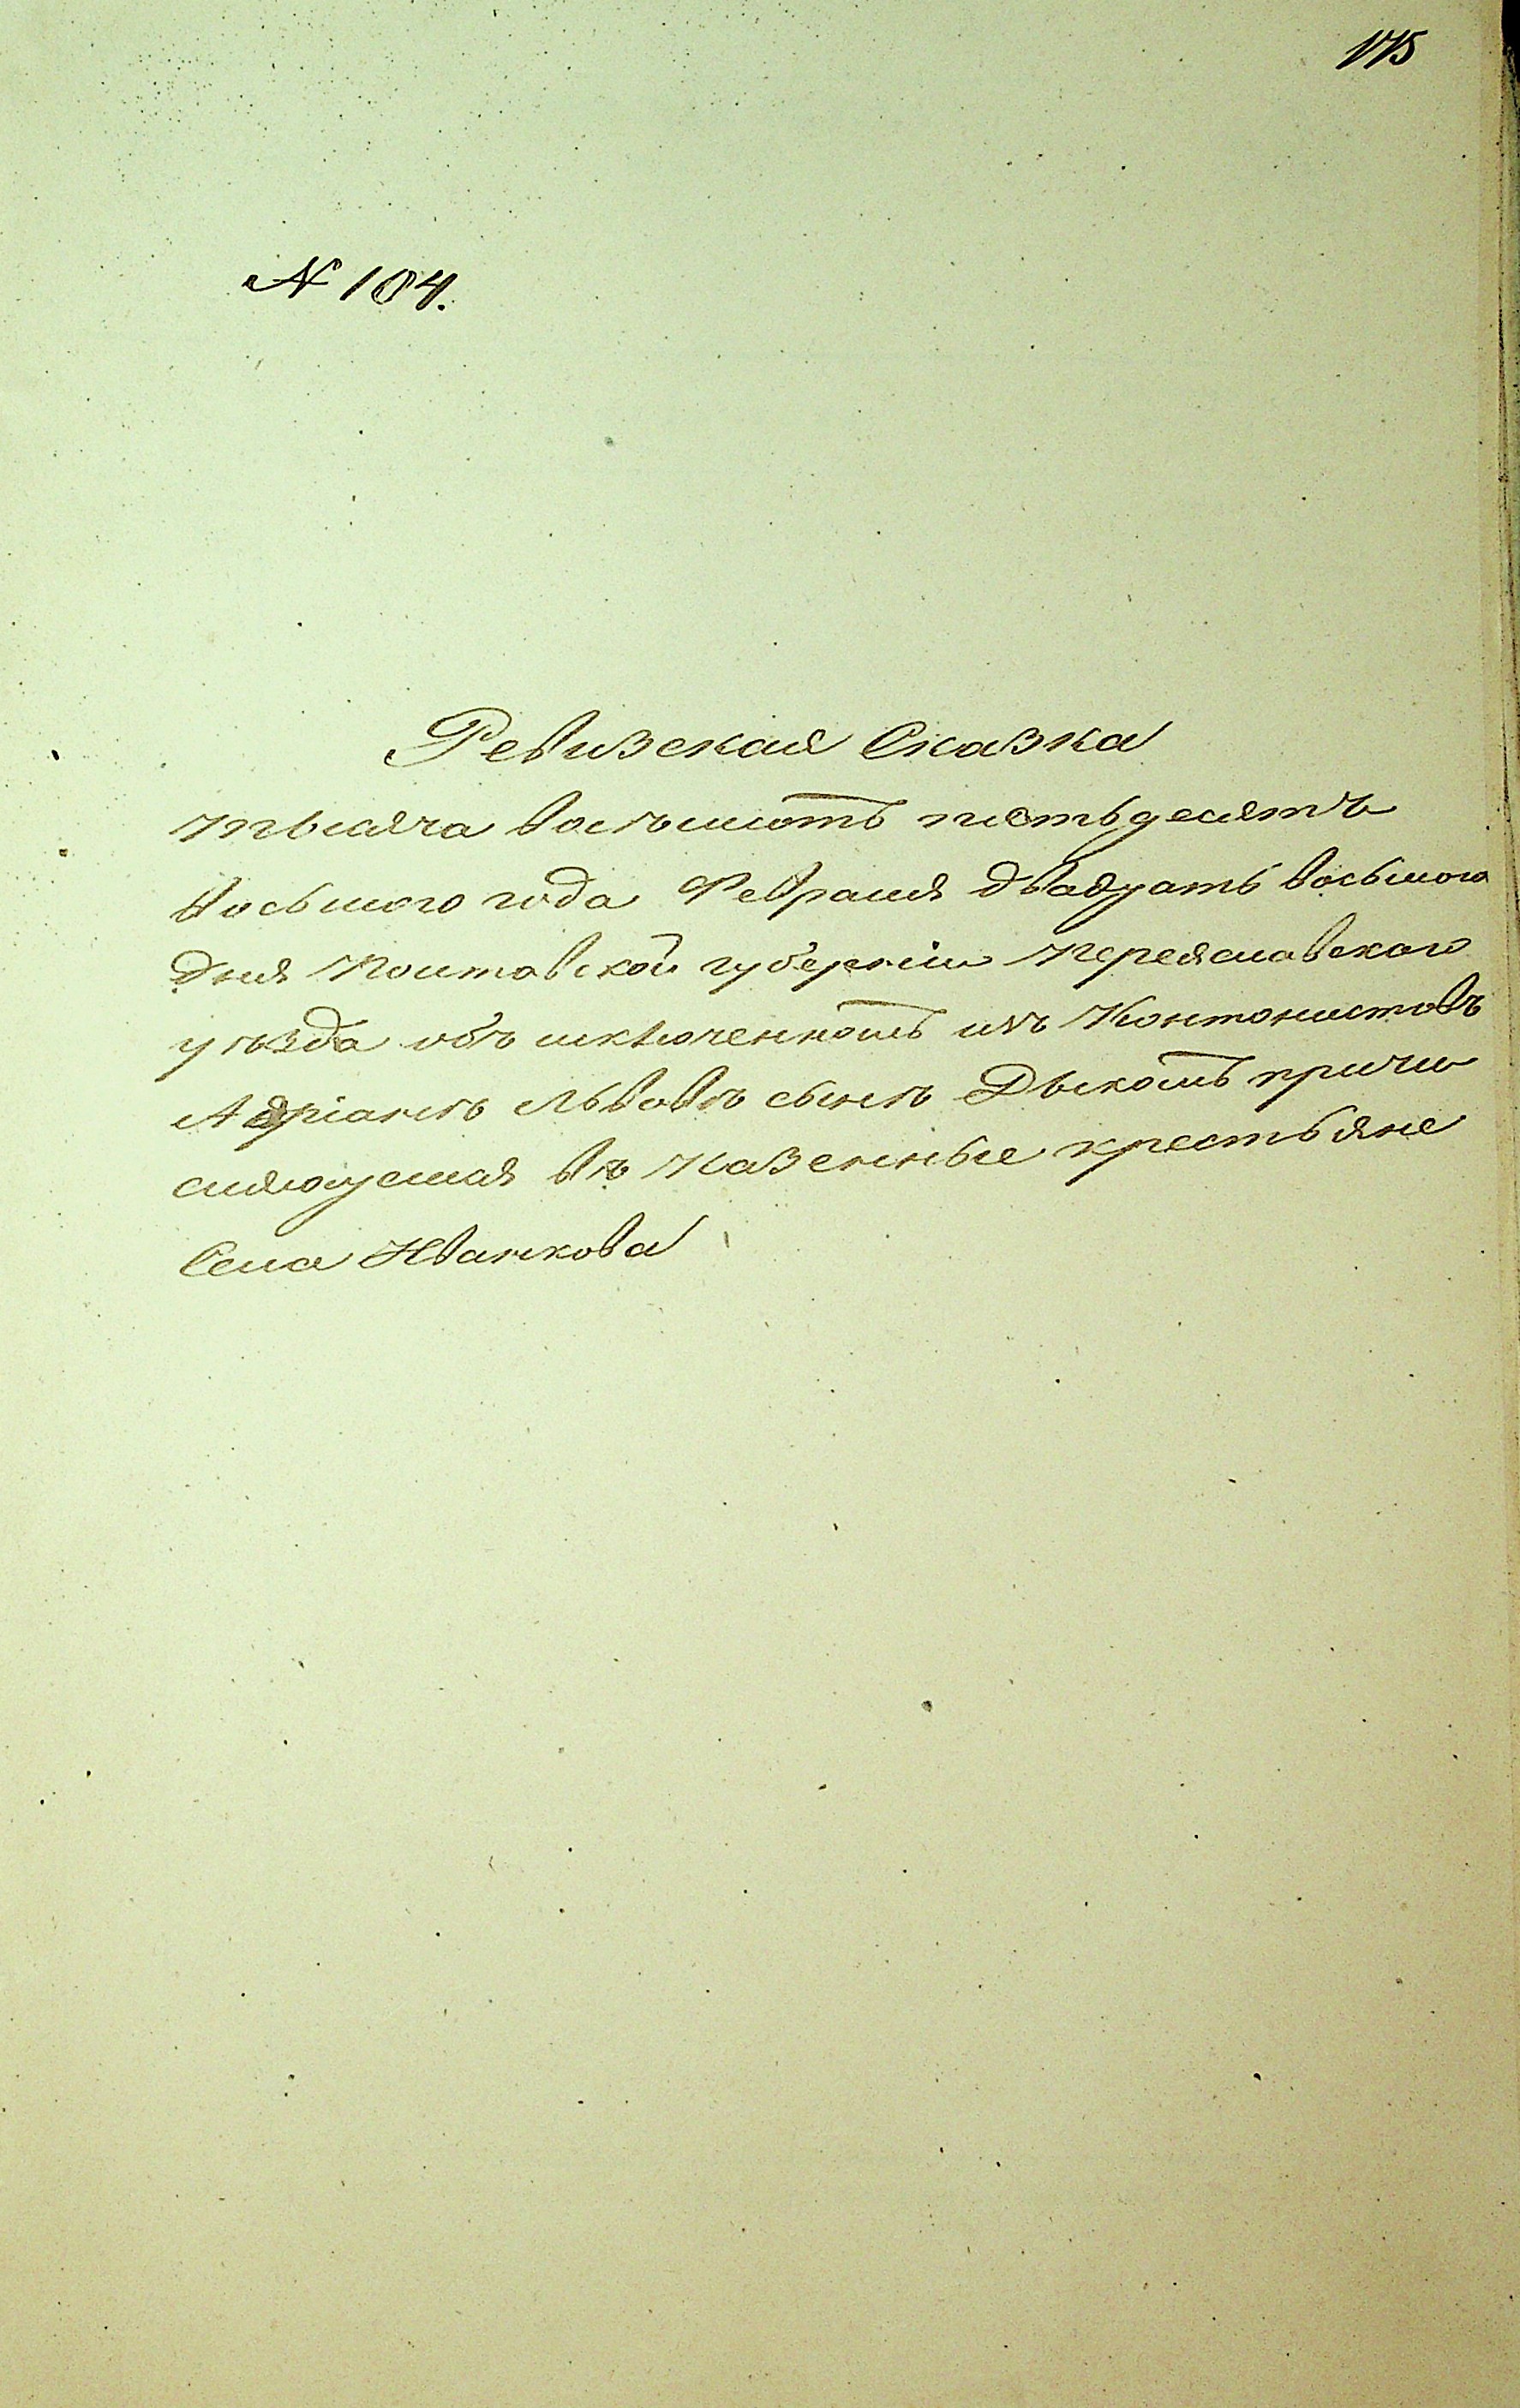 175
№ 104.
Ревизская Сказка
тысяча восѣмсотъ пятьдесятъ
восьмого года Февраля двадцать восьмого
дня Полтавской губерніи Переяславского
уѣзда объ исключенномъ изъ Контонистовъ
Адріанѣ Львовѣ сынѣ Дыкомъ причи
сляющемся въ казенные крестьяне
Села Иванкова